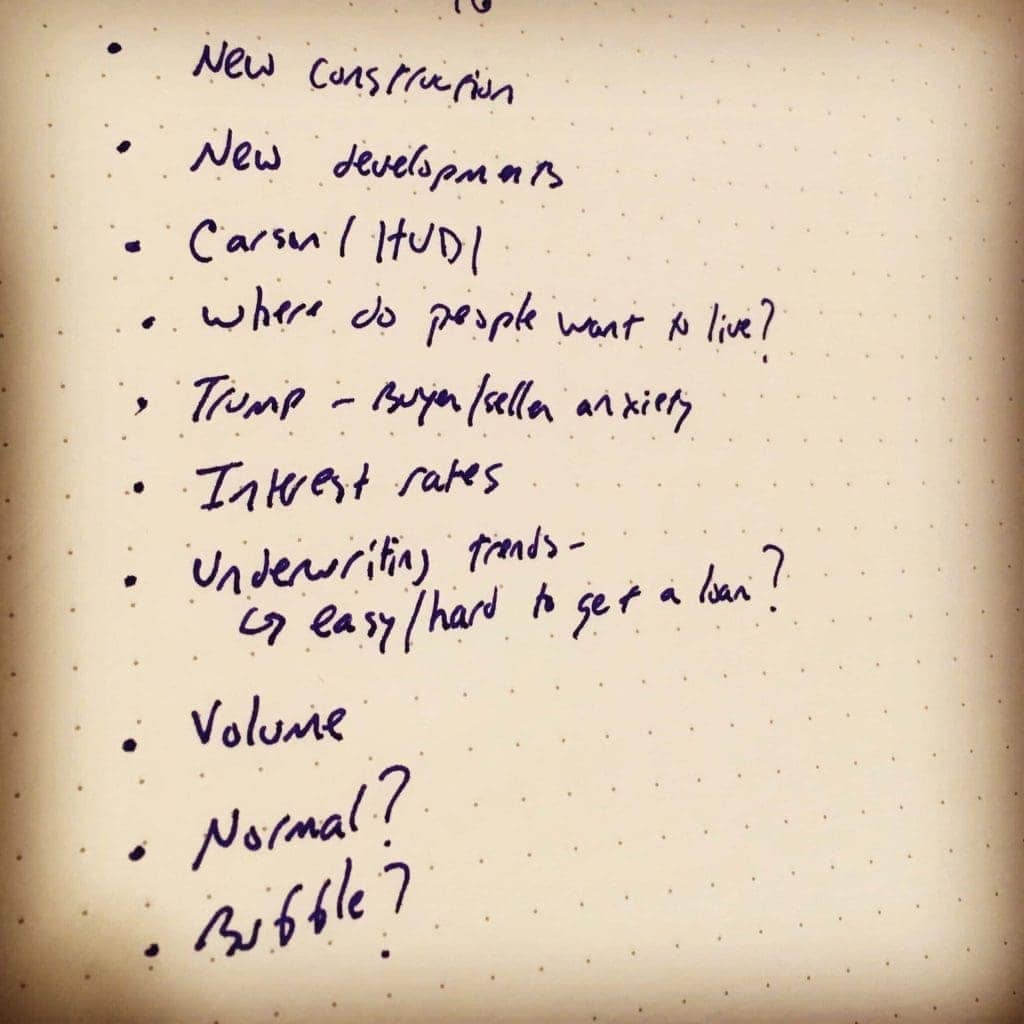 • New construction
• New developments
• Carson / HUD /
• Where do people want to live?
• Trump - Buyer/seller anxiety
• Interest rates
• Underwriting trends-
↳ easy/hard to get a loan?
• Volume
• Normal?
• Bubble?